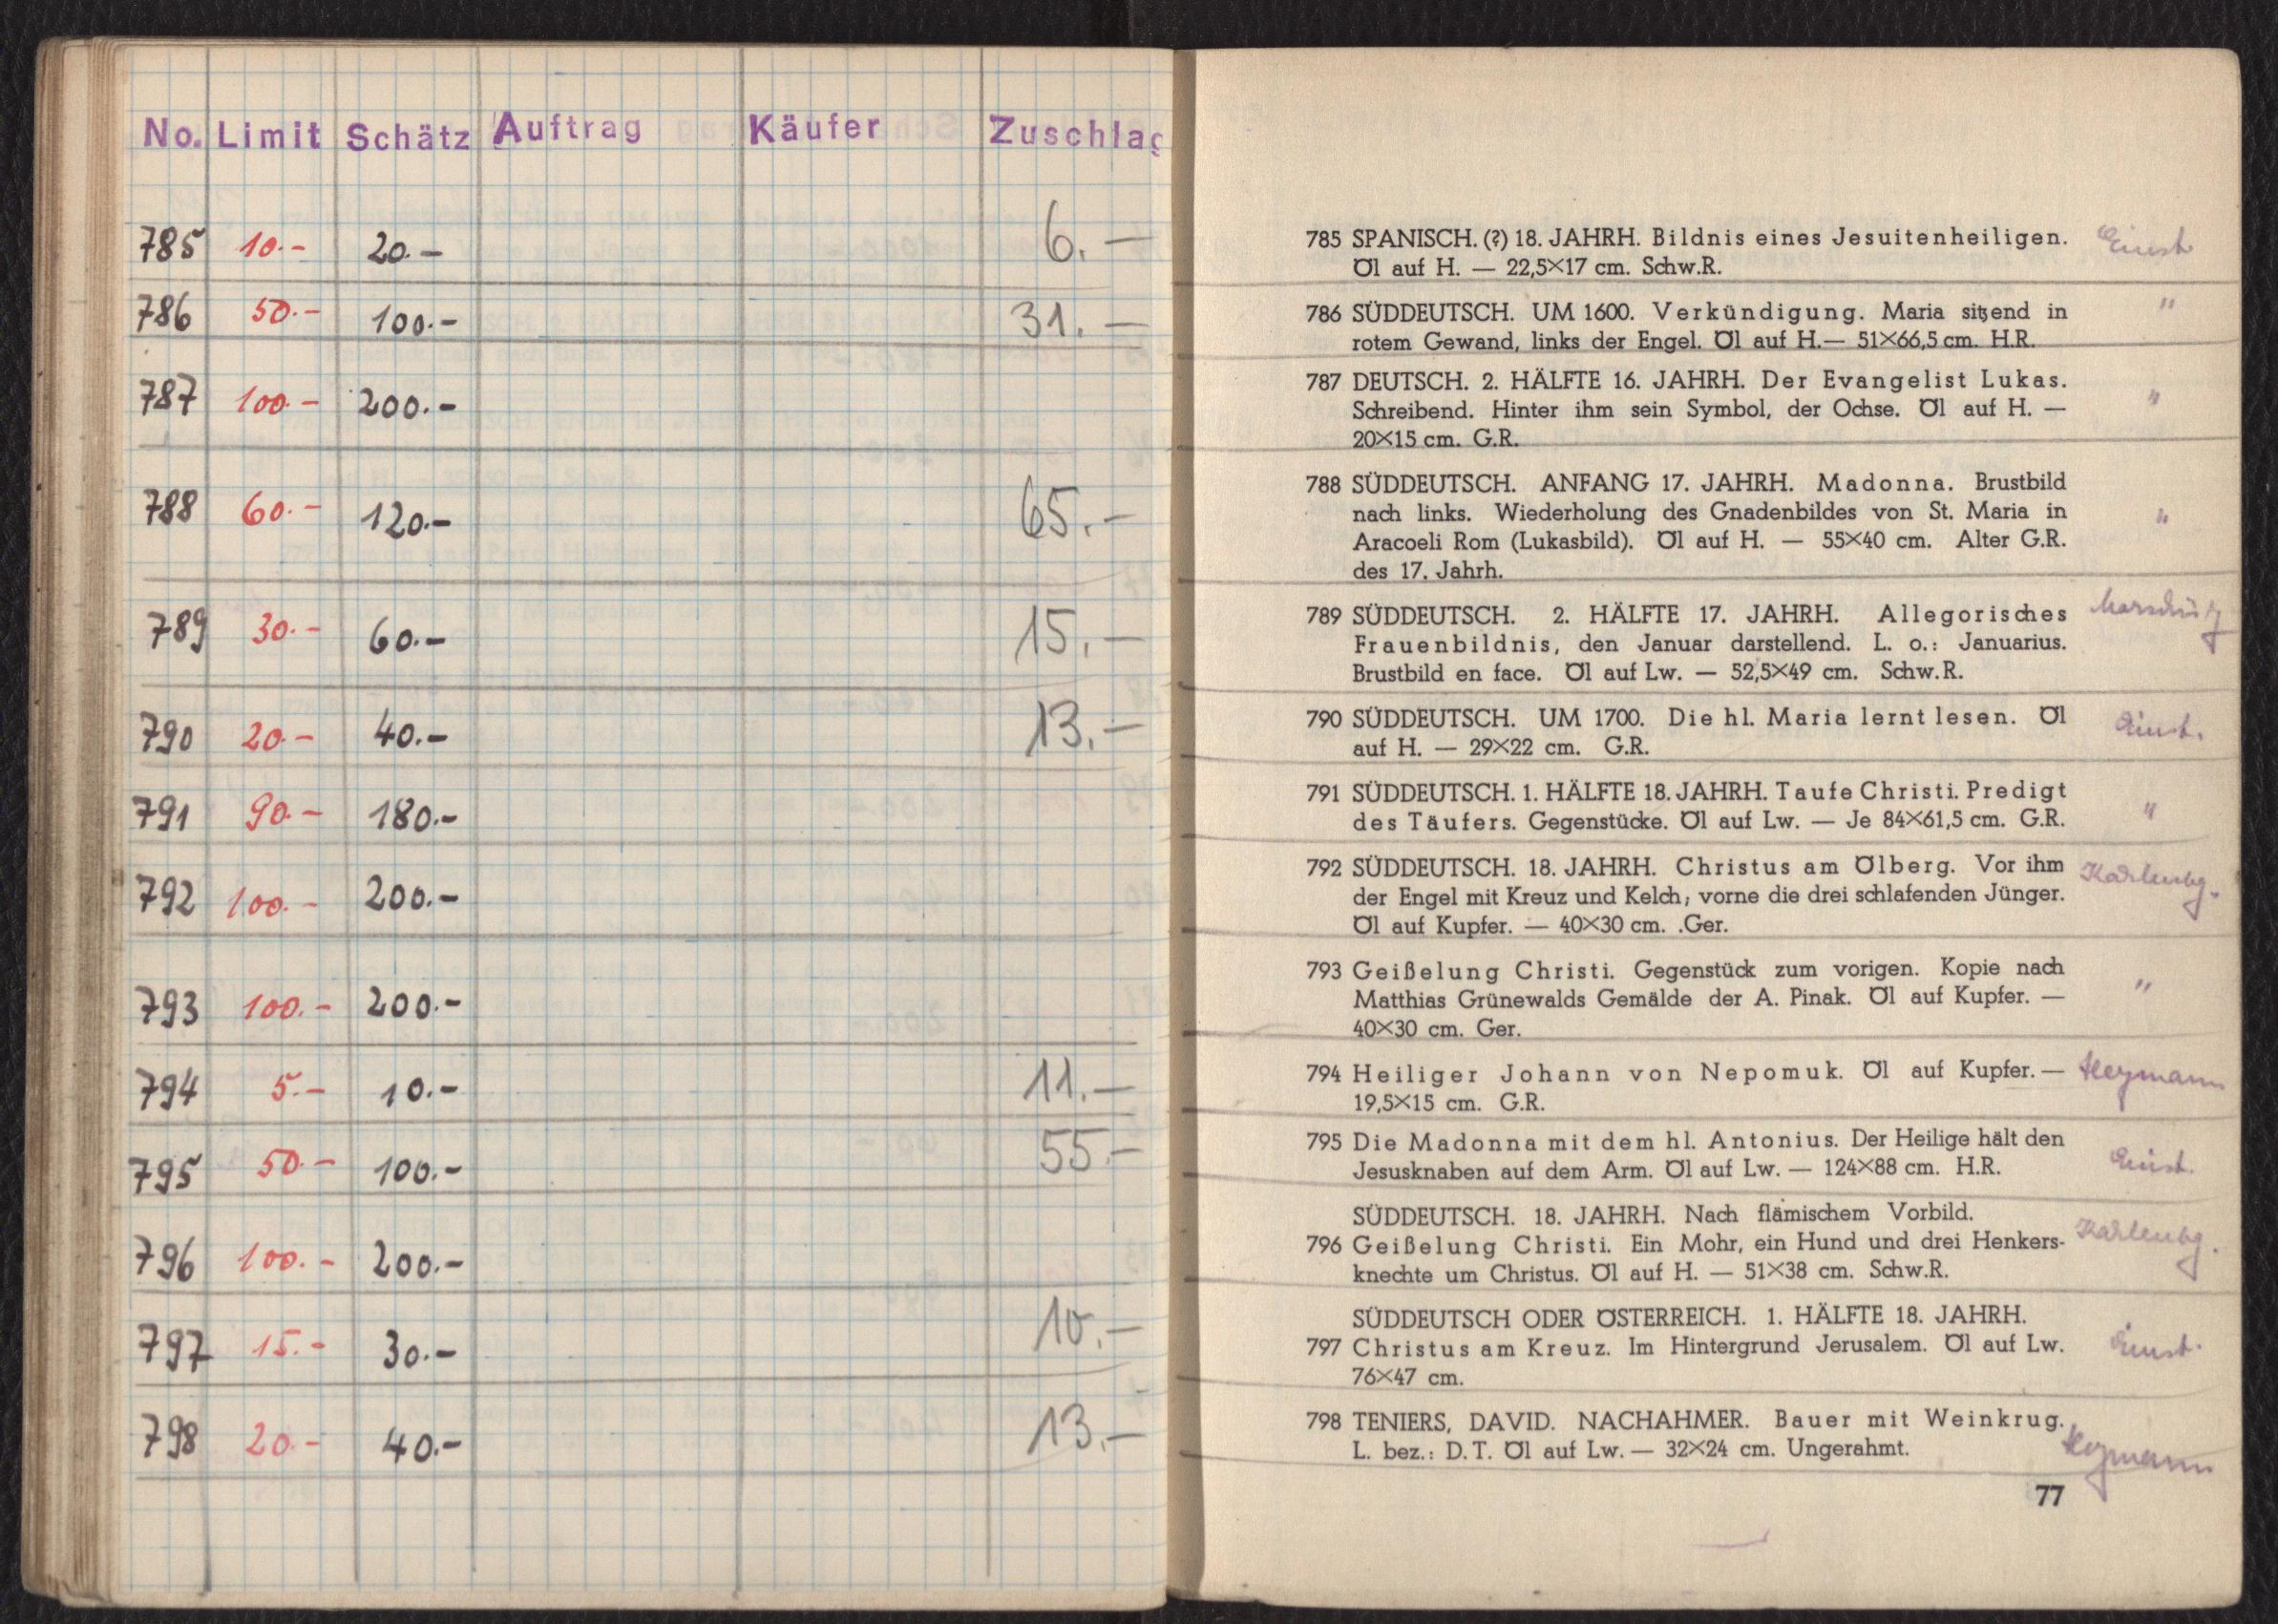 No. Limit Schätz Auftrag Käufer Zuschlag
785 10.- 20.- 6.—
786 50.- 100.- 31.—
787 100.- 200.-
788 60.- 120.- 65.-
789 30.- 60.- 15.—
790 20.- 40.- 13.—
791 90.- 180.-
792 100.- 200.-
793 100.- 200.-
794 5.- 10.- 11.—
795 50.- 100.- 55.-
796 100.- 200.-
797 15.- 30.- 10.—
798 20.- 40.- 13.—
785 SPANISCH. (?) 18. JAHRH. Bildnis eines Jesuitenheiligen.
Öl auf H. — 22,5×17 cm. Schw.R.
786 SÜDDEUTSCH. UM 1600. Verkündigung. Maria sitzend in "
rotem Gewand, links der Engel. Öl auf H.— 51×66,5 cm. H.R.
787 DEUTSCH. 2. HÄLFTE 16. JAHRH. Der Evangelist Lukas. "
Schreibend. Hinter ihm sein Symbol, der Ochse. Öl auf H. —
20×15 cm. G.R.
788 SÜDDEUTSCH. ANFANG 17. JAHRH. Madonna. Brustbild
nach links. Wiederholung des Gnadenbildes von St. Maria in "
Aracoeli Rom (Lukasbild). Öl auf H. — 55×40 cm. Alter G.R.
des 17. Jahrh.
789 SÜDDEUTSCH. 2. HÄLFTE 17. JAHRH. Allegorisches
Frauenbildnis, den Januar darstellend. L. o.: Januarius.
Brustbild en face. Öl auf Lw. — 52,5×49 cm. Schw.R.
790 SÜDDEUTSCH. UM 1700. Die hl. Maria lernt lesen. Öl
auf H. — 29×22 cm. G.R.
791 SÜDDEUTSCH. 1. HÄLFTE 18. JAHRH. Taufe Christi. Predigt "
des Täufers. Gegenstücke. Öl auf Lw. — Je 84×61,5 cm. G.R.
792 SÜDDEUTSCH. 18. JAHRH. Christus am Ölberg. Vor ihm
der Engel mit Kreuz und Kelch; vorne die drei schlafenden Jünger.
Öl auf Kupfer. — 40×30 cm. .Ger.
793 Geißelung Christi. Gegenstück zum vorigen. Kopie nach "
Matthias Grünewalds Gemälde der A. Pinak. Öl auf Kupfer. —
40×30 cm. Ger.
794 Heiliger Johann von Nepomuk. Öl auf Kupfer. — Heymann
19,5×15 cm. G.R.
795 Die Madonna mit dem hl. Antonius. Der Heilige hält den
Jesusknaben auf dem Arm. Öl auf Lw. — 124×88 cm. H.R.
SÜDDEUTSCH. 18. JAHRH. Nach flämischem Vorbild.
796 Geißelung Christi. Ein Mohr, ein Hund und drei Henkers-
knechte um Christus. Öl auf H. — 51×38 cm. Schw.R.
SÜDDEUTSCH ODER ÖSTERREICH. 1. HÄLFTE 18. JAHRH.
797 Christus am Kreuz. Im Hintergrund Jerusalem. Öl auf Lw.
76×47 cm.
798 TENIERS, DAVID. NACHAHMER. Bauer mit Weinkrug.
L. bez.: D.T. Öl auf Lw. — 32×24 cm. Ungerahmt. Heymann
77